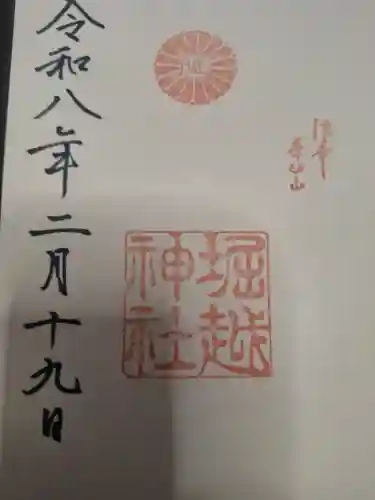 堀越
神社
令和八年二月十九日